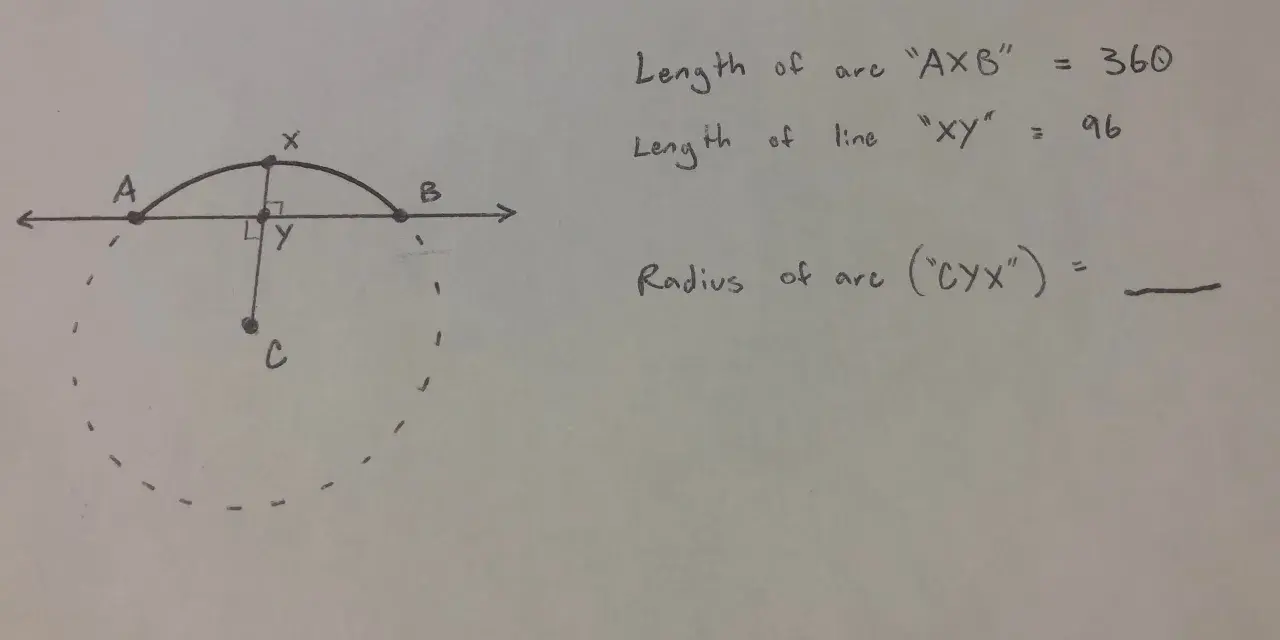 Length of arc "AXB" = 360
Length of line "XY" = 96
X
A
B
Y
Radius of arc ("CYX") = ____
C